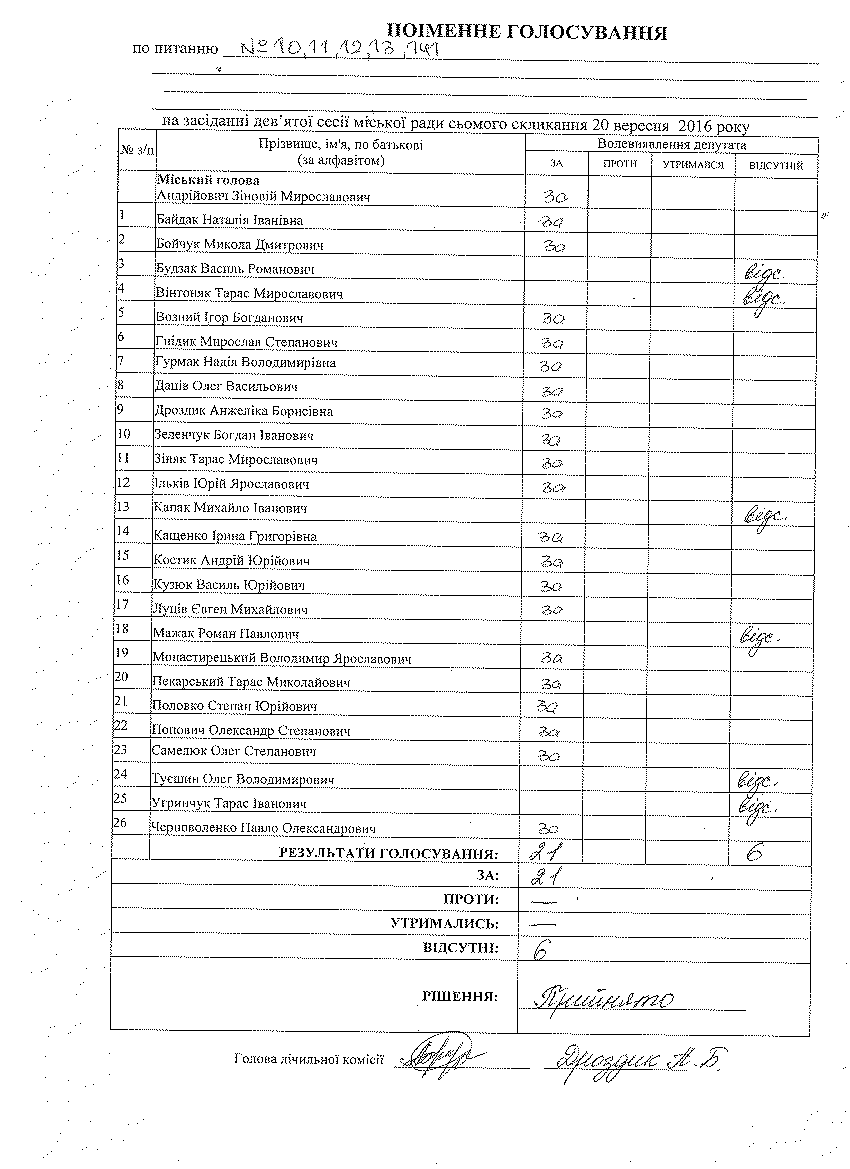 ПОІМЕННЕ ГОЛОСУВАННЯ
по питанню №10,11,12,13,14
на засіданні дев’ятої сесії міської ради сьомого скликання 20 вересня 2016 року
№ з/п Прізвище, ім'я, по батькові (за алфавітом) Волевиявлення депутата
ЗА ПРОТИ УТРИМАВСЯ ВІДСУТНІЙ
Міський голова
Андрійович Зіновій Мирославович За
1 Байдак Наталія Іванівна За
2 Бойчук Микола Дмитрович За
3 Будзак Василь Романович відс.
4 Вінтоняк Тарас Мирославович відс.
5 Возний Ігор Богданович За
6 Гнідик Мирослав Степанович За
7 Гурмак Надія Володимирівна За
8 Даців Олег Васильович За
9 Дроздик Анжеліка Борисівна За
10 Зеленчук Богдан Іванович За
11 Зіняк Тарас Мирославович За
12 Ільків Юрій Ярославович За
13 Капак Михайло Іванович відс.
14 Кащенко Ірина Григорівна За
15 Костик Андрій Юрійович За
16 Кузюк Василь Юрійович За
17 Луців Євген Михайлович За
18 Мажак Роман Павлович відс.
19 Монастирецький Володимир Ярославович За
20 Пекарський Тарас Миколайович За
21 Половко Степан Юрійович За
22 Попович Олександр Степанович За
23 Самелюк Олег Степанович За
24 Туєшин Олег Володимирович відс.
25 Угринчук Тарас Іванович відс.
26 Черповоленко Павло Олександрович За
РЕЗУЛЬТАТИ ГОЛОСУВАННЯ: 21 6
ЗА: 21
ПРОТИ: —
УТРИМАЛИСЬ: —
ВІДСУТНІ: 6
РІШЕННЯ: Прийнято
Голова лічильної комісії Дроздик А. Б.